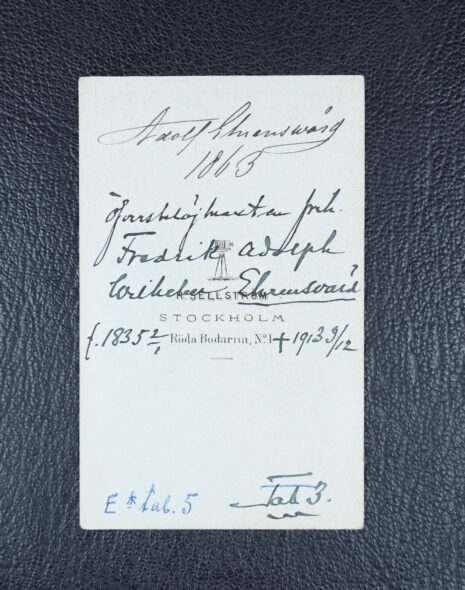 Adolf Ehrensvärd
1865
Öfverstelöjtnanten frih.
Fredrik Adolph
Wilhelm Ehrensvärd
R. SELLSTRÖM
STOCKHOLM
f. 1835 2/1 Röda Bodarna, Nº1 † 1913 9/12
E * tab. 5
Tab 3.